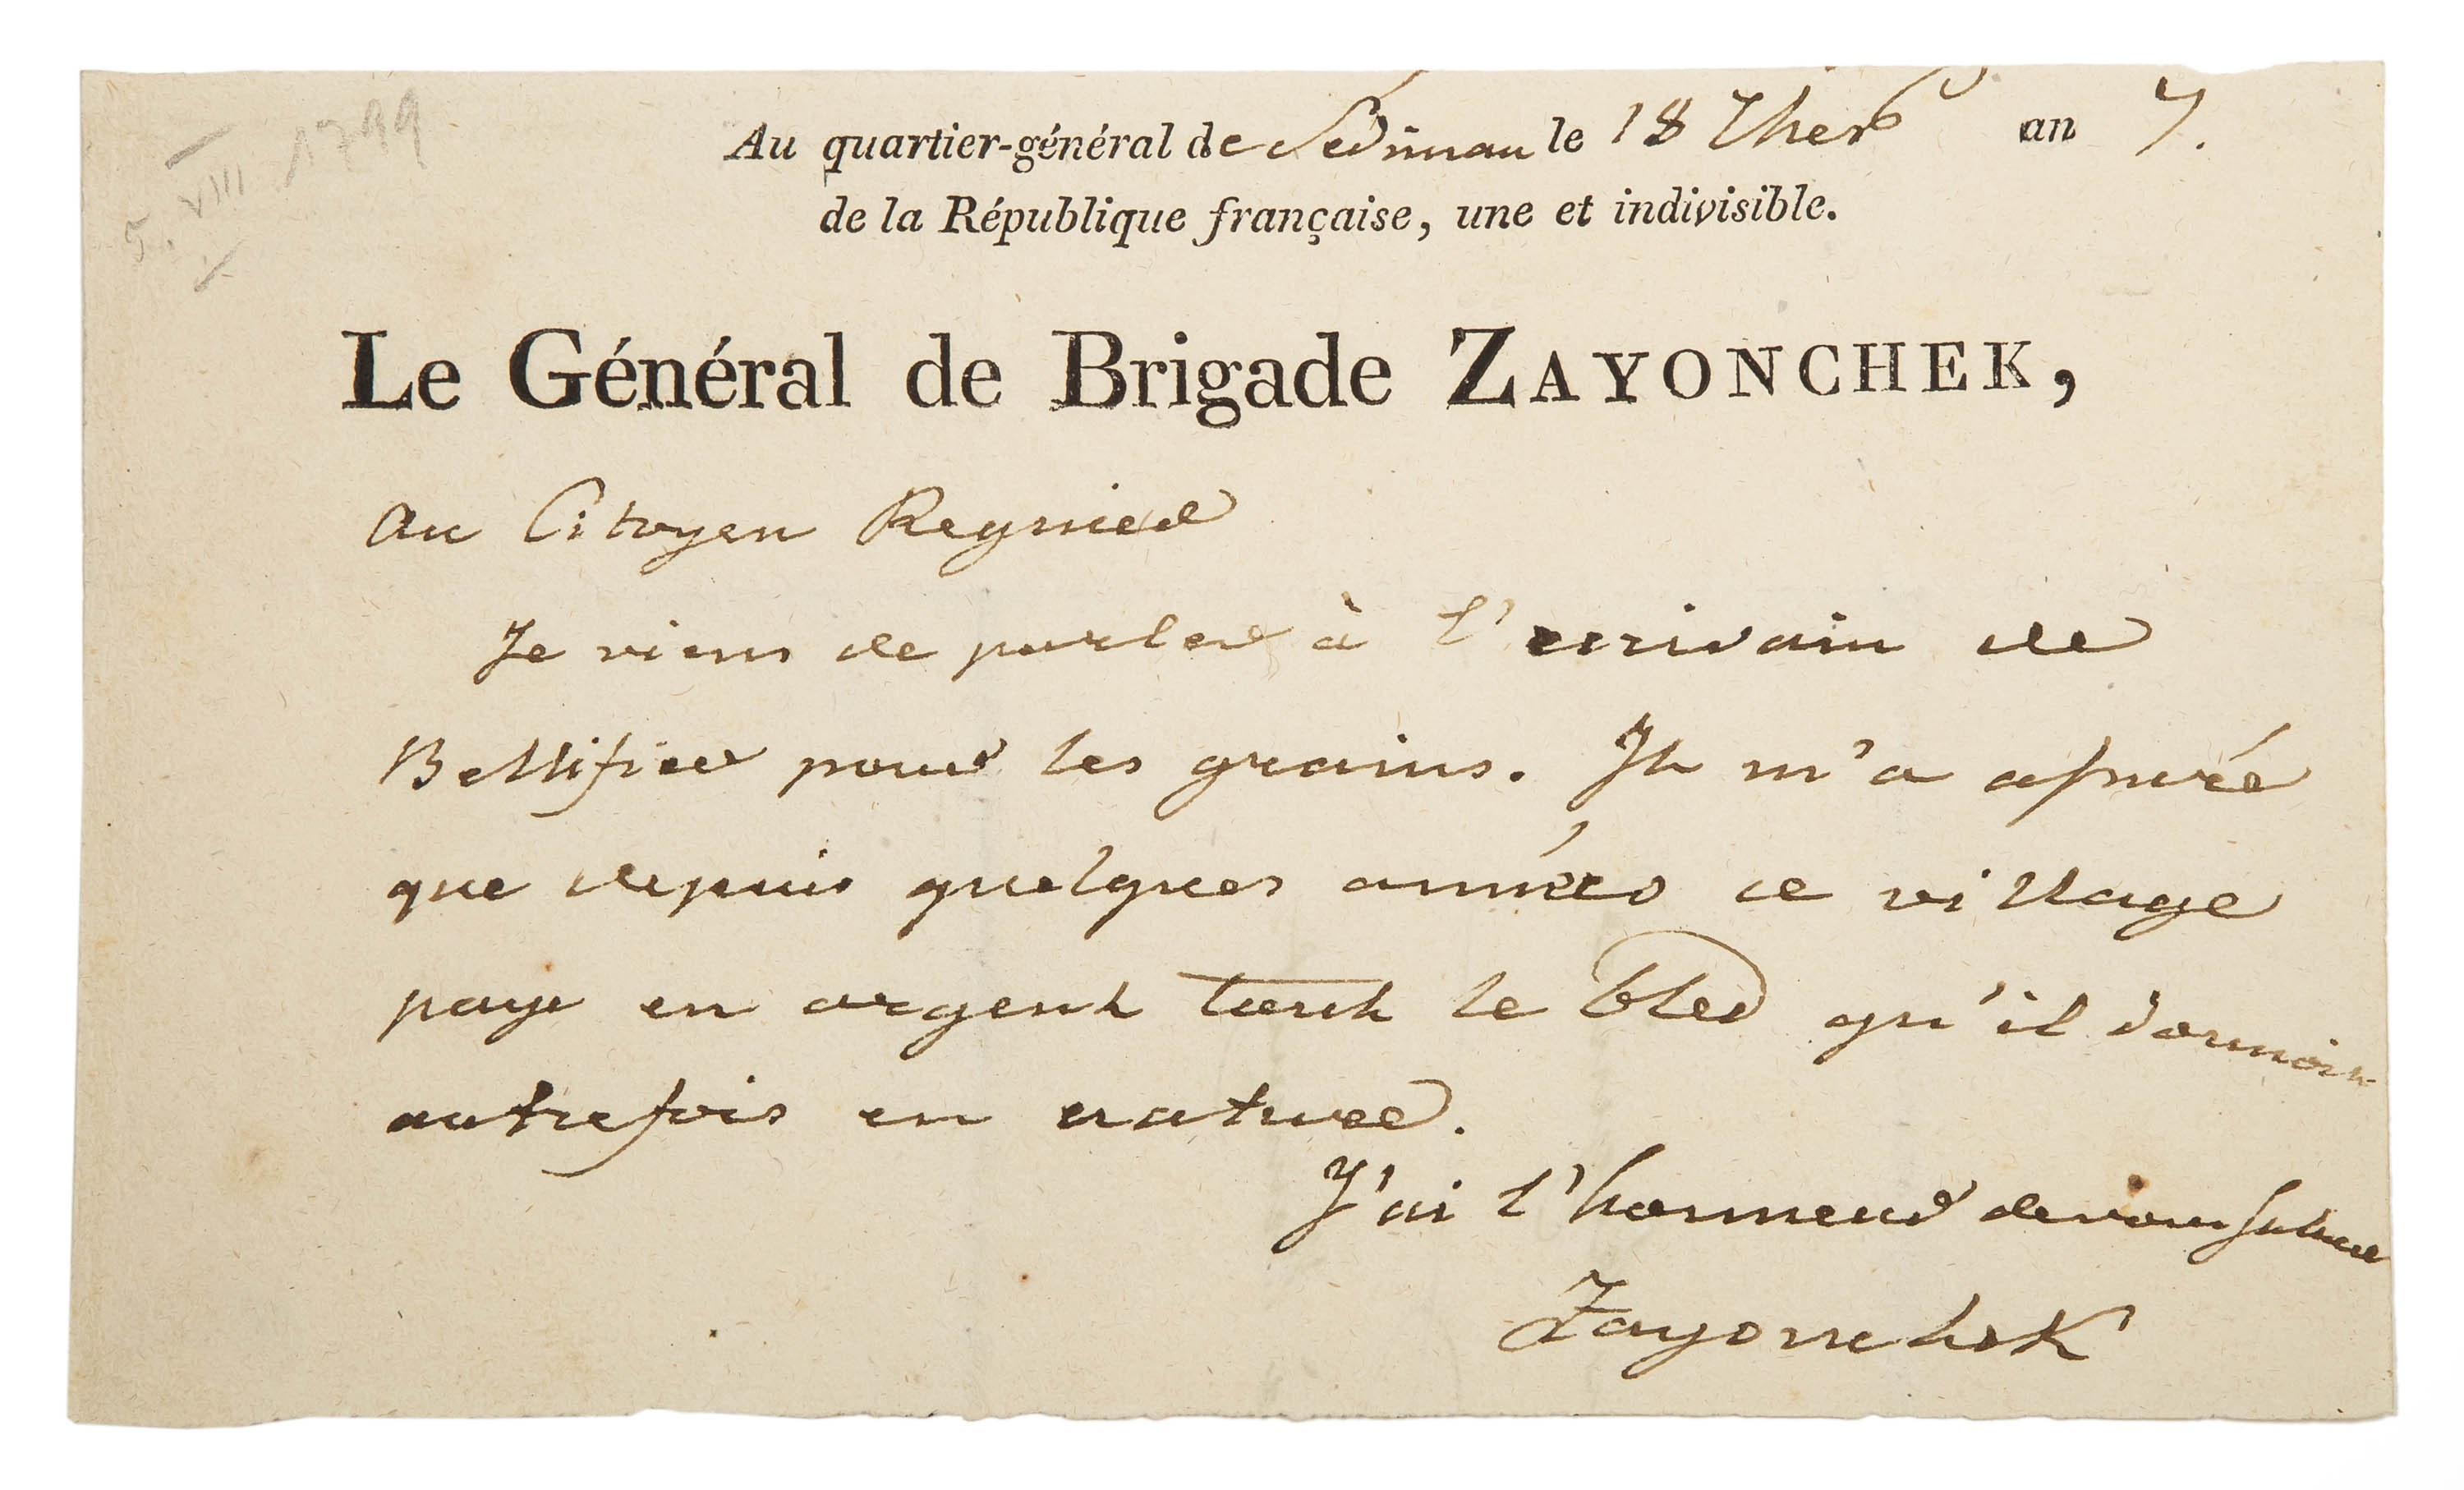 5. VIII 1799
Au quartier-général de Sediman le 18 Therd an 7.
de la République française, une et indivisible.
Le Général de Brigade ZAYONCHEK,
Au Citoyen Regnier
Je viens de parler à l'ecrivain de
pour les grains. Il m'a assuré
que depuis quelques années ce village
paye en argent tout le bled qu'il donnoit
autrefois en nature.
J'ai l'honneur de vous saluer
Zayonchek